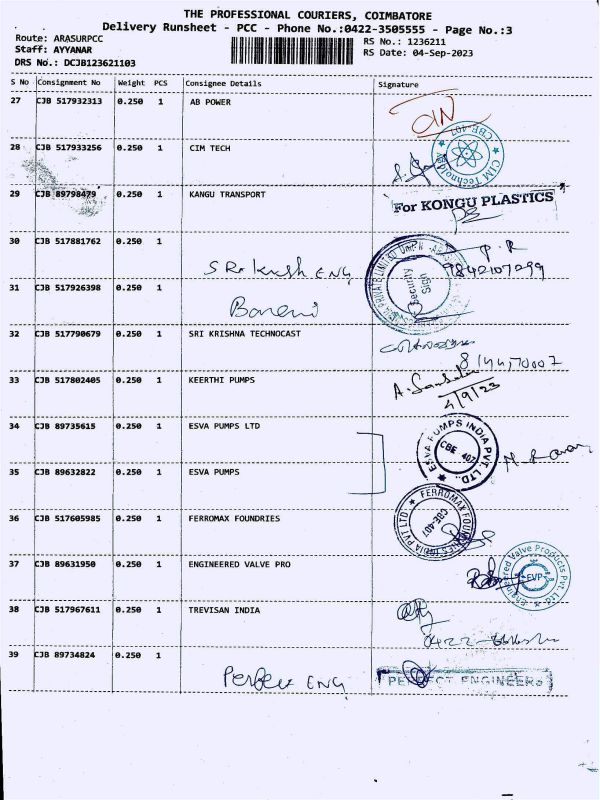 THE PROFESSIONAL COURIERS, COIMBATORE
Delivery Runsheet - PCC - Phone No.:0422-3505555 - Page No.:3
Route: ARASURPCC
Staff: AYYANAR
DRS No.: DCJB123621103
RS No.: 1236211
RS Date: 04-Sep-2023
S No Consignment No Weight PCS Consignee Details Signature
27 CJB 517932313 0.250 1 AB POWER
28 CJB 517933256 0.250 1 CIM TECH
CBE-407
29 CJB 89798479 0.250 1 KANGU TRANSPORT
For KONGU PLASTICS
30 CJB 517881762 0.250 1
P. R
9842107299
Sri Krish ENG
Security
Sign
31 CJB 517926398 0.250 1
32 CJB 517790679 0.250 1 SRI KRISHNA TECHNOCAST
33 CJB 517802405 0.250 1 KEERTHI PUMPS
4/9/23
34 CJB 89735615 0.250 1 ESVA PUMPS LTD
ESVA PUMPS INDIA PVT. LTD.
CBE 407
35 CJB 89632822 0.250 1 ESVA PUMPS
36 CJB 517605985 0.250 1 FERROMAX FOUNDRIES
FERROMAX FOUNDRIES INDIA PVT LTD
CBE-407
37 CJB 89631950 0.250 1 ENGINEERED VALVE PRO
Engineered Valve Products Pvt Ltd
EVP
38 CJB 517967611 0.250 1 TREVISAN INDIA
39 CJB 89734824 0.250 1
Perfect ENG
PERFECT ENGINEERS